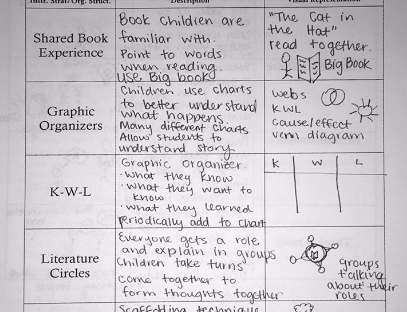 Instr. Strat/Org. Struct.
Description
Visual Representation
Shared Book
Experience
Book Children are
familiar with.
Point to words
when reading
use Big book
"The Cat in
the Hat"
read together.
Big Book
Graphic
Organizers
Children use charts
to better understand
what happens.
Many different charts
Allow students to
understand story.
webs
KWL
cause/effect
venn diagram
K-W-L
Graphic organizer
• what they know
• what they want to
know
• what they learned
periodically add to chart
K W L
Literature
Circles
Everyone gets a role
and explain in groups
Children take turns
come together to
form thoughts together
groups
talking
about their
roles
Scaffolding technique